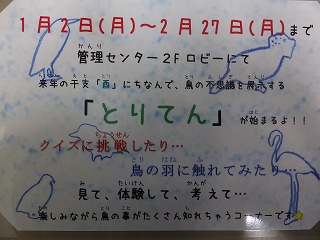 1月2日(月)～2月27日(月)まで
管理センター2Fロビーにて
来年の干支「酉」にちなんで、鳥の不思議を展示する
「とりてん」が始まるよ!!
クイズに挑戦したり…
鳥の羽に触れてみたり
見て、体験して、考えて…
楽しみながら鳥の事がたくさん知れちゃうコーナーです